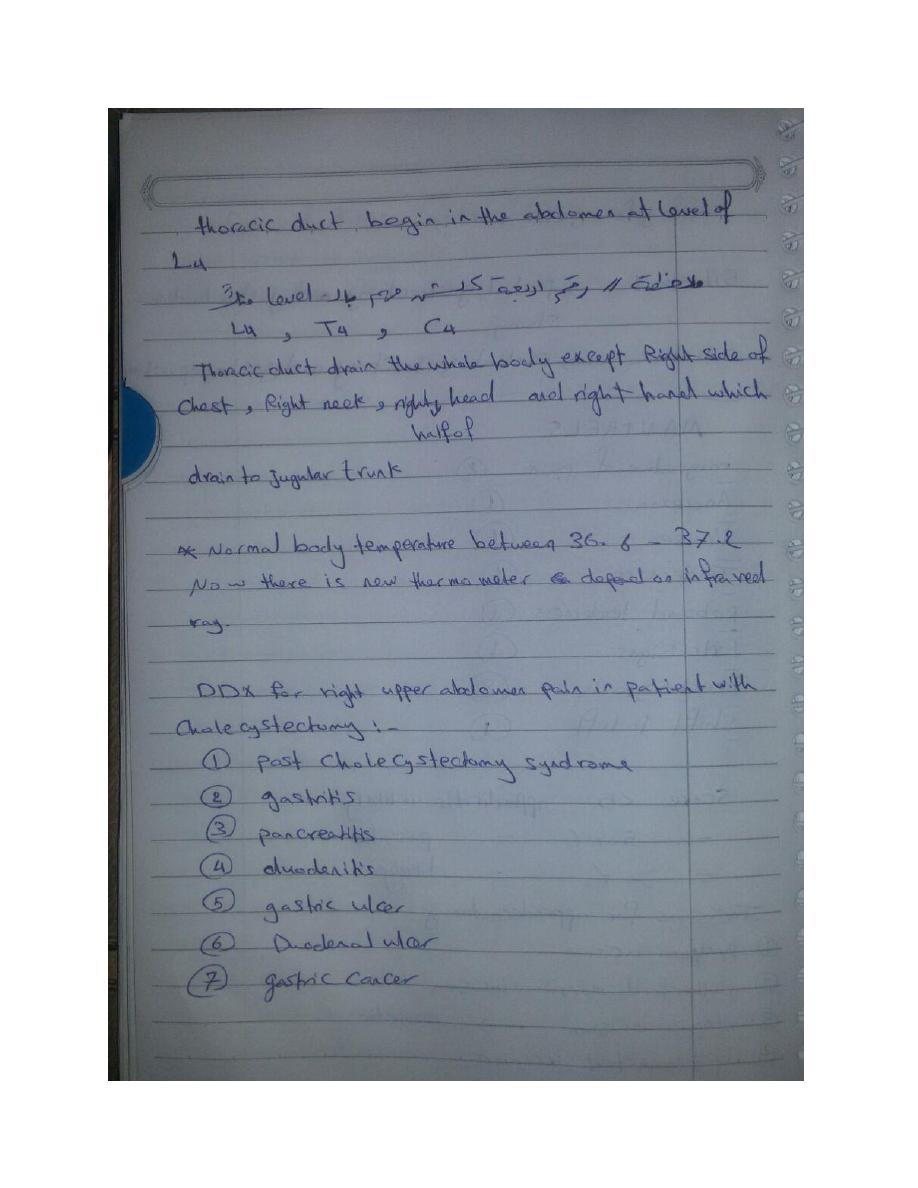 thoracic duct begin in the abdomen at level of
L4
ملاحظة // رقم اربعة كلش مهم بال level مثلاً
L4 , T4 , C4
Thoracic duct drain the whole body except Right side of
Chest , Right neck , right half of head and right hand which
drain to jugular trunk
* Normal body temperature between 36.6 - 37.2
Now there is new thermometer depend on infrared
ray.
DDX for right upper abdomen pain in patient with
Cholecystectomy :-
① post Cholecystectomy syndrome
② gastritis
③ pancreatitis
④ duodenitis
⑤ gastric ulcer
⑥ Duodenal ulcer
⑦ gastric Cancer